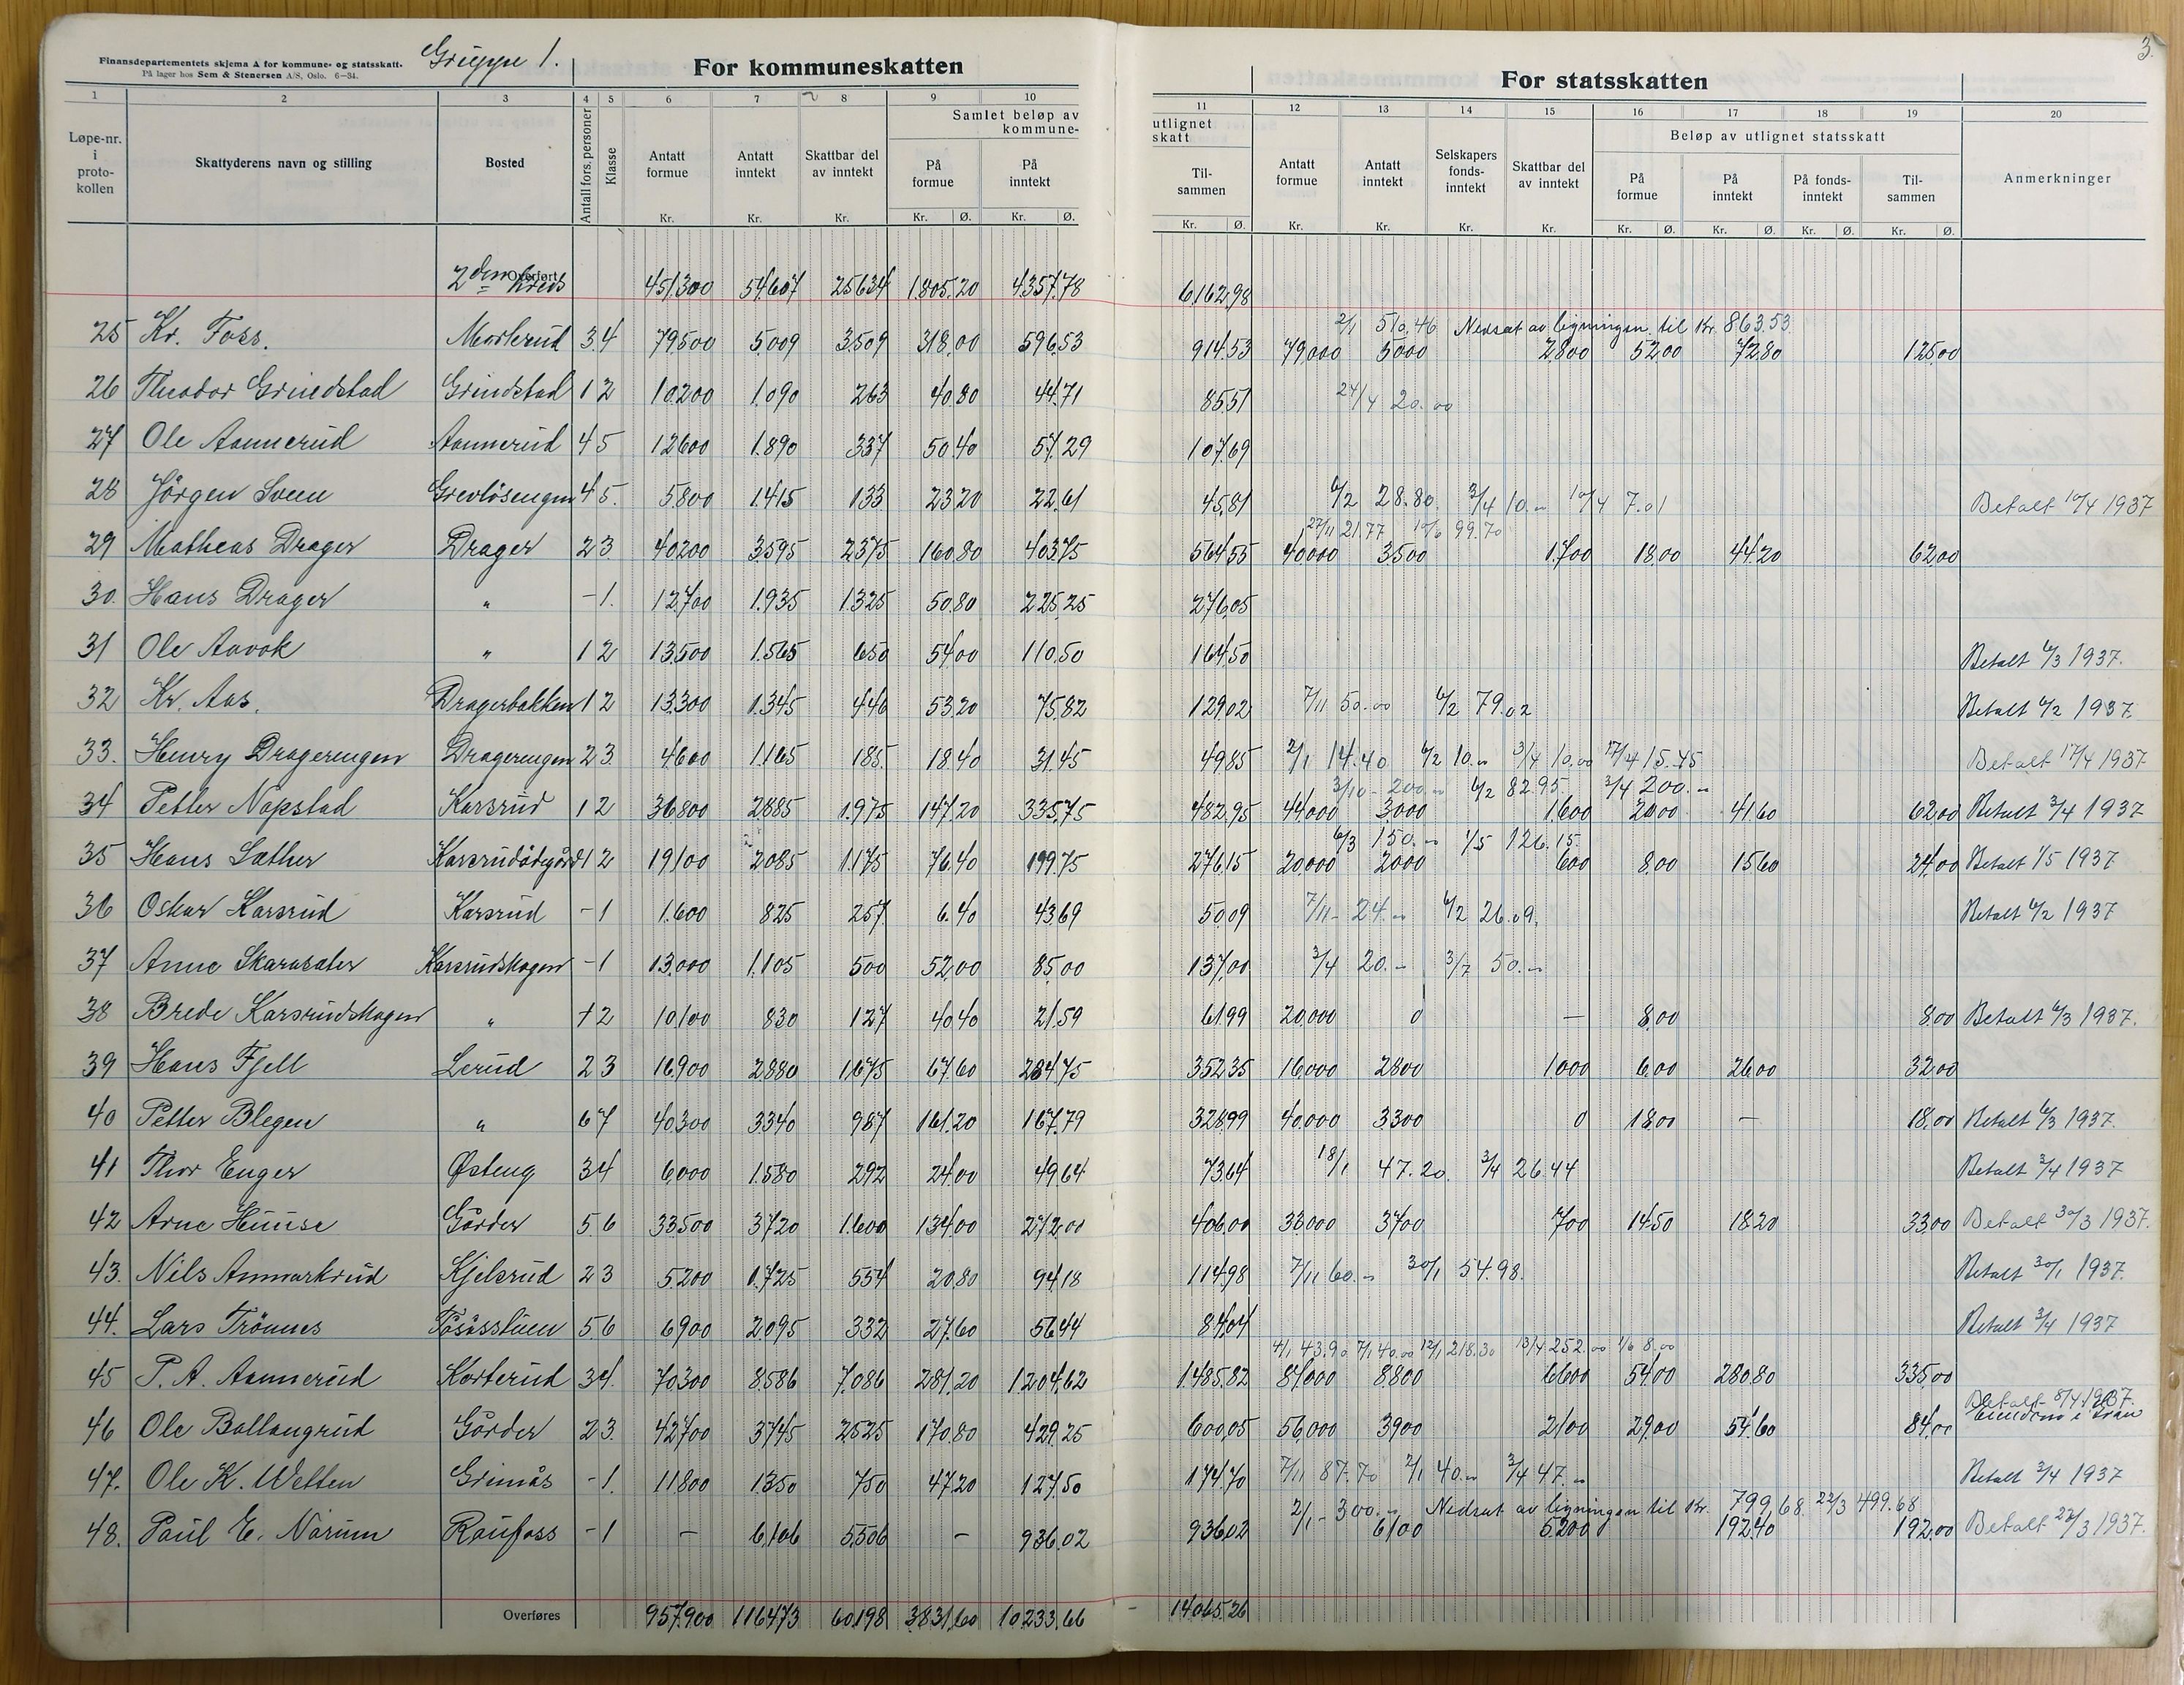 Finansdepartementets skjema A for kommune- og statsskatt.
På lager hos Sem & Stenersen A/S, Oslo. 6—34.
Gruppe 1.
For kommuneskatten
For statsskatten
3.
1 2 3 4 5 6 7 8 9 10 11 12 13 14 15 16 17 18 19 20
Løpe-nr. i proto-kollen
Skattyderens navn og stilling
Bosted
Antall fors. personer
Klasse
Antatt formue Kr.
Antatt inntekt Kr.
Skattbar del av inntekt Kr.
Samlet beløp av kommune-
På formue Kr. Ø.
På inntekt Kr. Ø.
utlignet skatt
Til-sammen Kr. Ø.
Antatt formue Kr.
Antatt inntekt Kr.
Selskapers fonds-inntekt Kr.
Skattbar del av inntekt Kr.
Beløp av utlignet statsskatt
På formue Kr. Ø.
På inntekt Kr. Ø.
På fonds-inntekt Kr. Ø.
Til-sammen Kr. Ø.
Anmerkninger
Overført
2den Kreds 451300 54607 25634 1805.20 4357.78 6162.98
2/1 510.46 Nedsat av ligningen til Kr. 863.53
25 Kr. Foss. Morterud 3 4 79500 5009 3509 318.00 596.53 914.53 79000 5000 2800 52.00 72.80 125.00
26 Theodor Grindstad Grindstad 1 2 10200 1090 263 40.80 44.71 85.51 24/4 20.00
27 Ole Aannerud Aannerud 4 5 12600 1890 337 50.40 57.29 107.69
28 Jörgen Sveen Grevlösengen 4 5. 5800 1415 133 23.20 22.61 45.81 6/2 28.80 3/4 10.- 10/4 7.01 Betalt 10/4 1937
27/11 21.77 10/6 99.70
29 Matheas Drager Drager 2 3 40200 3595 2375 160.80 403.75 564.55 40000 3500 1700 18.00 44.20 62.00
30. Hans Drager " - 1. 12700 1935 1325 50.80 225.25 276.05
31 Ole Aavok " 1 2 13500 1565 650 54.00 110.50 164.50 Betalt 6/3 1937.
32 Kr. Aas. Dragerbakken 1 2 13300 1345 446 53.20 75.82 129.02 7/11 50.00 6/2 79.02 Betalt 6/2 1937.
33. Henry Dragerengen Dragerengen 2 3 4600 1165 185 18.40 31.45 49.85 2/1 14.40 6/2 10.- 3/4 10.00 17/4 15.45 Betalt 17/4 1937
3/10 - 200.- 6/2 82.95 3/4 200.-
34 Petter Nøpstad Karsrud 1 2 36800 2885 1975 147.20 335.75 482.95 44000 3000 1600 20.00 41.60 62.00 Betalt 3/4 1937
6/3 150.- 1/5 126.15
35 Hans Sæther 1 2 19100 2085 1175 76.40 199.75 276.15 20000 2000 600 8.00 15.60 24.00 Betalt 1/5 1937
36 Oskar Karsrud Karsrud - 1 1600 825 257 6.40 43.69 50.09 7/11 - 24.- 6/2 26.09. Betalt 6/2 1937
37 Anne Skarasæter Karsrudskogen - 1 13000 1105 500 52.00 85.00 137.00 3/4 20.- 3/7 50.-
38 Brede Karsrudskogen " 1 2 10100 830 127 40.40 21.59 61.99 20000 0 — 8.00 8.00 Betalt 6/3 1937.
39 Hans Fjell Lerud 2 3 16900 2880 1675 67.60 284.75 352.35 16000 2800 1000 6.00 26.00 32.00
40 Petter Blegen " 6 7 40300 3340 987 161.20 167.79 328.99 40000 3300 0 18.00 — 18.00 Betalt 6/3 1937.
41 Thor Enger Østeng 3 4 6000 1580 292 24.00 49.64 73.64 18/1 47.20. 3/4 26.44 Betalt 3/4 1937
42 Arne Huuse Gårder 5 6 33500 3720 1600 134.00 272.00 406.00 33000 3700 700 14.50 18.20 33.00 Betalt 30/3 1937.
43. Nils Anmarkrud Kjelsrud 2 3 5200 1725 554 20.80 94.18 114.98 7/11 60.- 30/1 54.98. Betalt 30/1 1937.
44. Lars Trönnes 5 6 6900 2095 332 27.60 56.44 84.04 Betalt 3/4 1937
4/1 43.90 7/1 40.00 12/1 218.30 13/4 252.00 1/6 8.00
45 P. A. Aannerud Korterud 3 4. 70300 8586 7086 281.20 1204.62 1485.82 81000 8800 6600 54.00 280.80 335.00
Betalt 8/4 1937.
46 Ole Ballangrud Gårder 2 3 42700 3745 2525 170.80 429.25 600.05 56000 3900 2100 29.00 54.60 84.00 Eiendom i Gran
47. Ole K. Wetten Grimås - 1. 11800 1350 750 47.20 127.50 174.70 7/11 87.70 2/1 40.- 3/4 47.- Betalt 3/4 1937
2/1 - 300.- Nedsat av ligningen til Kr. 799,68. 22/3 499.68
48. Paul E. Norum Raufoss - 1 — 6106 5506 — 936.02 936.02 6100 5200 192.40 192.00 Betalt 22/3 1937.
Overføres 957900 116473 60198 3831.60 10233.66 14065.26